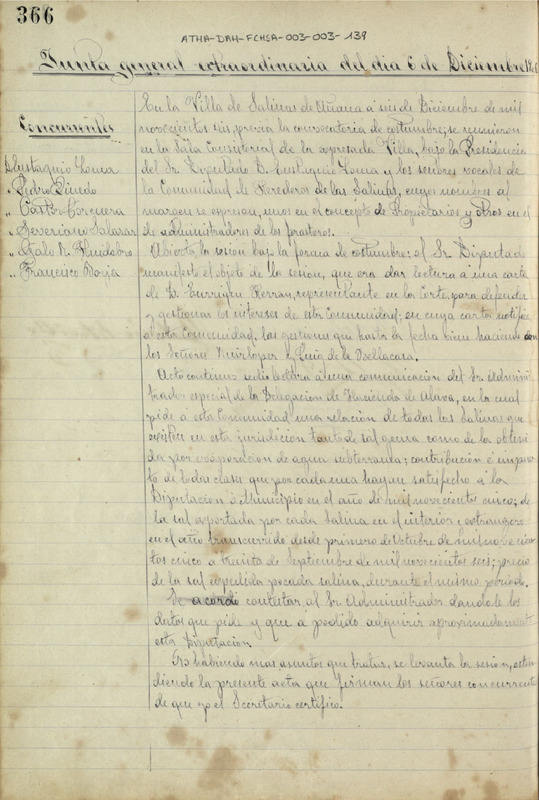 366
ATHA-DAH-FCHSA-003-003-139
Junta general extraordinaria del dia 6 de Diciembre
Concurrentes
D. Eustaquio Loma
" Pedro Pinedo
" Castor Corquera
" Severiano Salazar
" Galo R. Huidobro
" Francisco Borja
En la Villa de Salinas de Añana á seis de Diciembre de mil
novecientos seis, prévia la convocatoria de costumbre, se reunieron
en la Sala Consistorial de la expresada Villa, bajo la Presidencia
del Sr. Diputado D. Eustaquio Loma y los señores vocales de
la Comunidad de Herederos de las Salinas, cuyos nombres al
margen se expresan, unos en el concepto de Propietarios y otros en el
de administradores de los forasteros.
Abierta la sesión bajo la forma de costumbre; el Sr. Diputado
manifestó el objeto de la sesión, que era dar lectura á una carta
de D. Enrique Herran, representante en la Corte, para defender
y gestionar los intereses de esta Comunidad; en cuya carta notifica
á esta Comunidad, las gestiones que hasta la fecha viene haciendo con
los Señores y Luis de la
Acto continuo se dió lectura á una comunicación del Sr. Adminis
trador especial de la Delegación de Hacienda de Alava, en la cual
pide á esta Comunidad una relación de todas las Salinas que
existen en esta jurisdición tanto de sal gema como de la obteni
da por evaporación de agua subterranea; contribución é impues
to de todas clases que por cada una hayan satisfecho á la
Diputación ó Municipio en el año de mil novecientos cinco; de
la sal exportada por cada Salina en el interior y extrangero
en el año transcurrido desde primero de Octubre de mil novecien
tos cinco á treinta de Septiembre de mil novecientos seis; precio
de la sal expedida por cada salina, durante el mismo periodo.
Se acordó contestar, al Sr. Administrador dandole los
datos que pide y que á podido adquirir aproximadamente
esta Diputación.
No habiendo mas asuntos que tratar, se levanta la sesión, exten
diendo la presente acta que firman los señores concurrentes
de que yo el Secretario certifico.